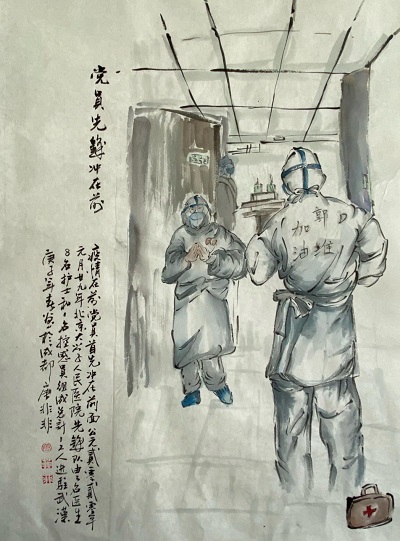 党员先鋒冲在前
疫情在前党员首先冲在前面公元贰零贰零年
元月廿九年北京大学人民医院先鋒队由 名医生
8名护士和 名控感员组成共计 人进驻武汉
庚子年春画於成都 唐非非
郭维
加油